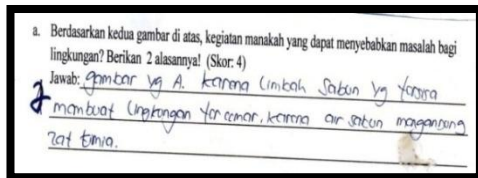 a. Berdasarkan kedua gambar di atas, kegiatan manakah yang dapat menyebabkan masalah bagi
lingkungan? Berikan 2 alasannya! (Skor: 4)
Jawab: gambar yg A. karena limbah sabun yg tersisa
2 membuat lingkungan tercemar, karena air sabun mengandung
zat kimia.